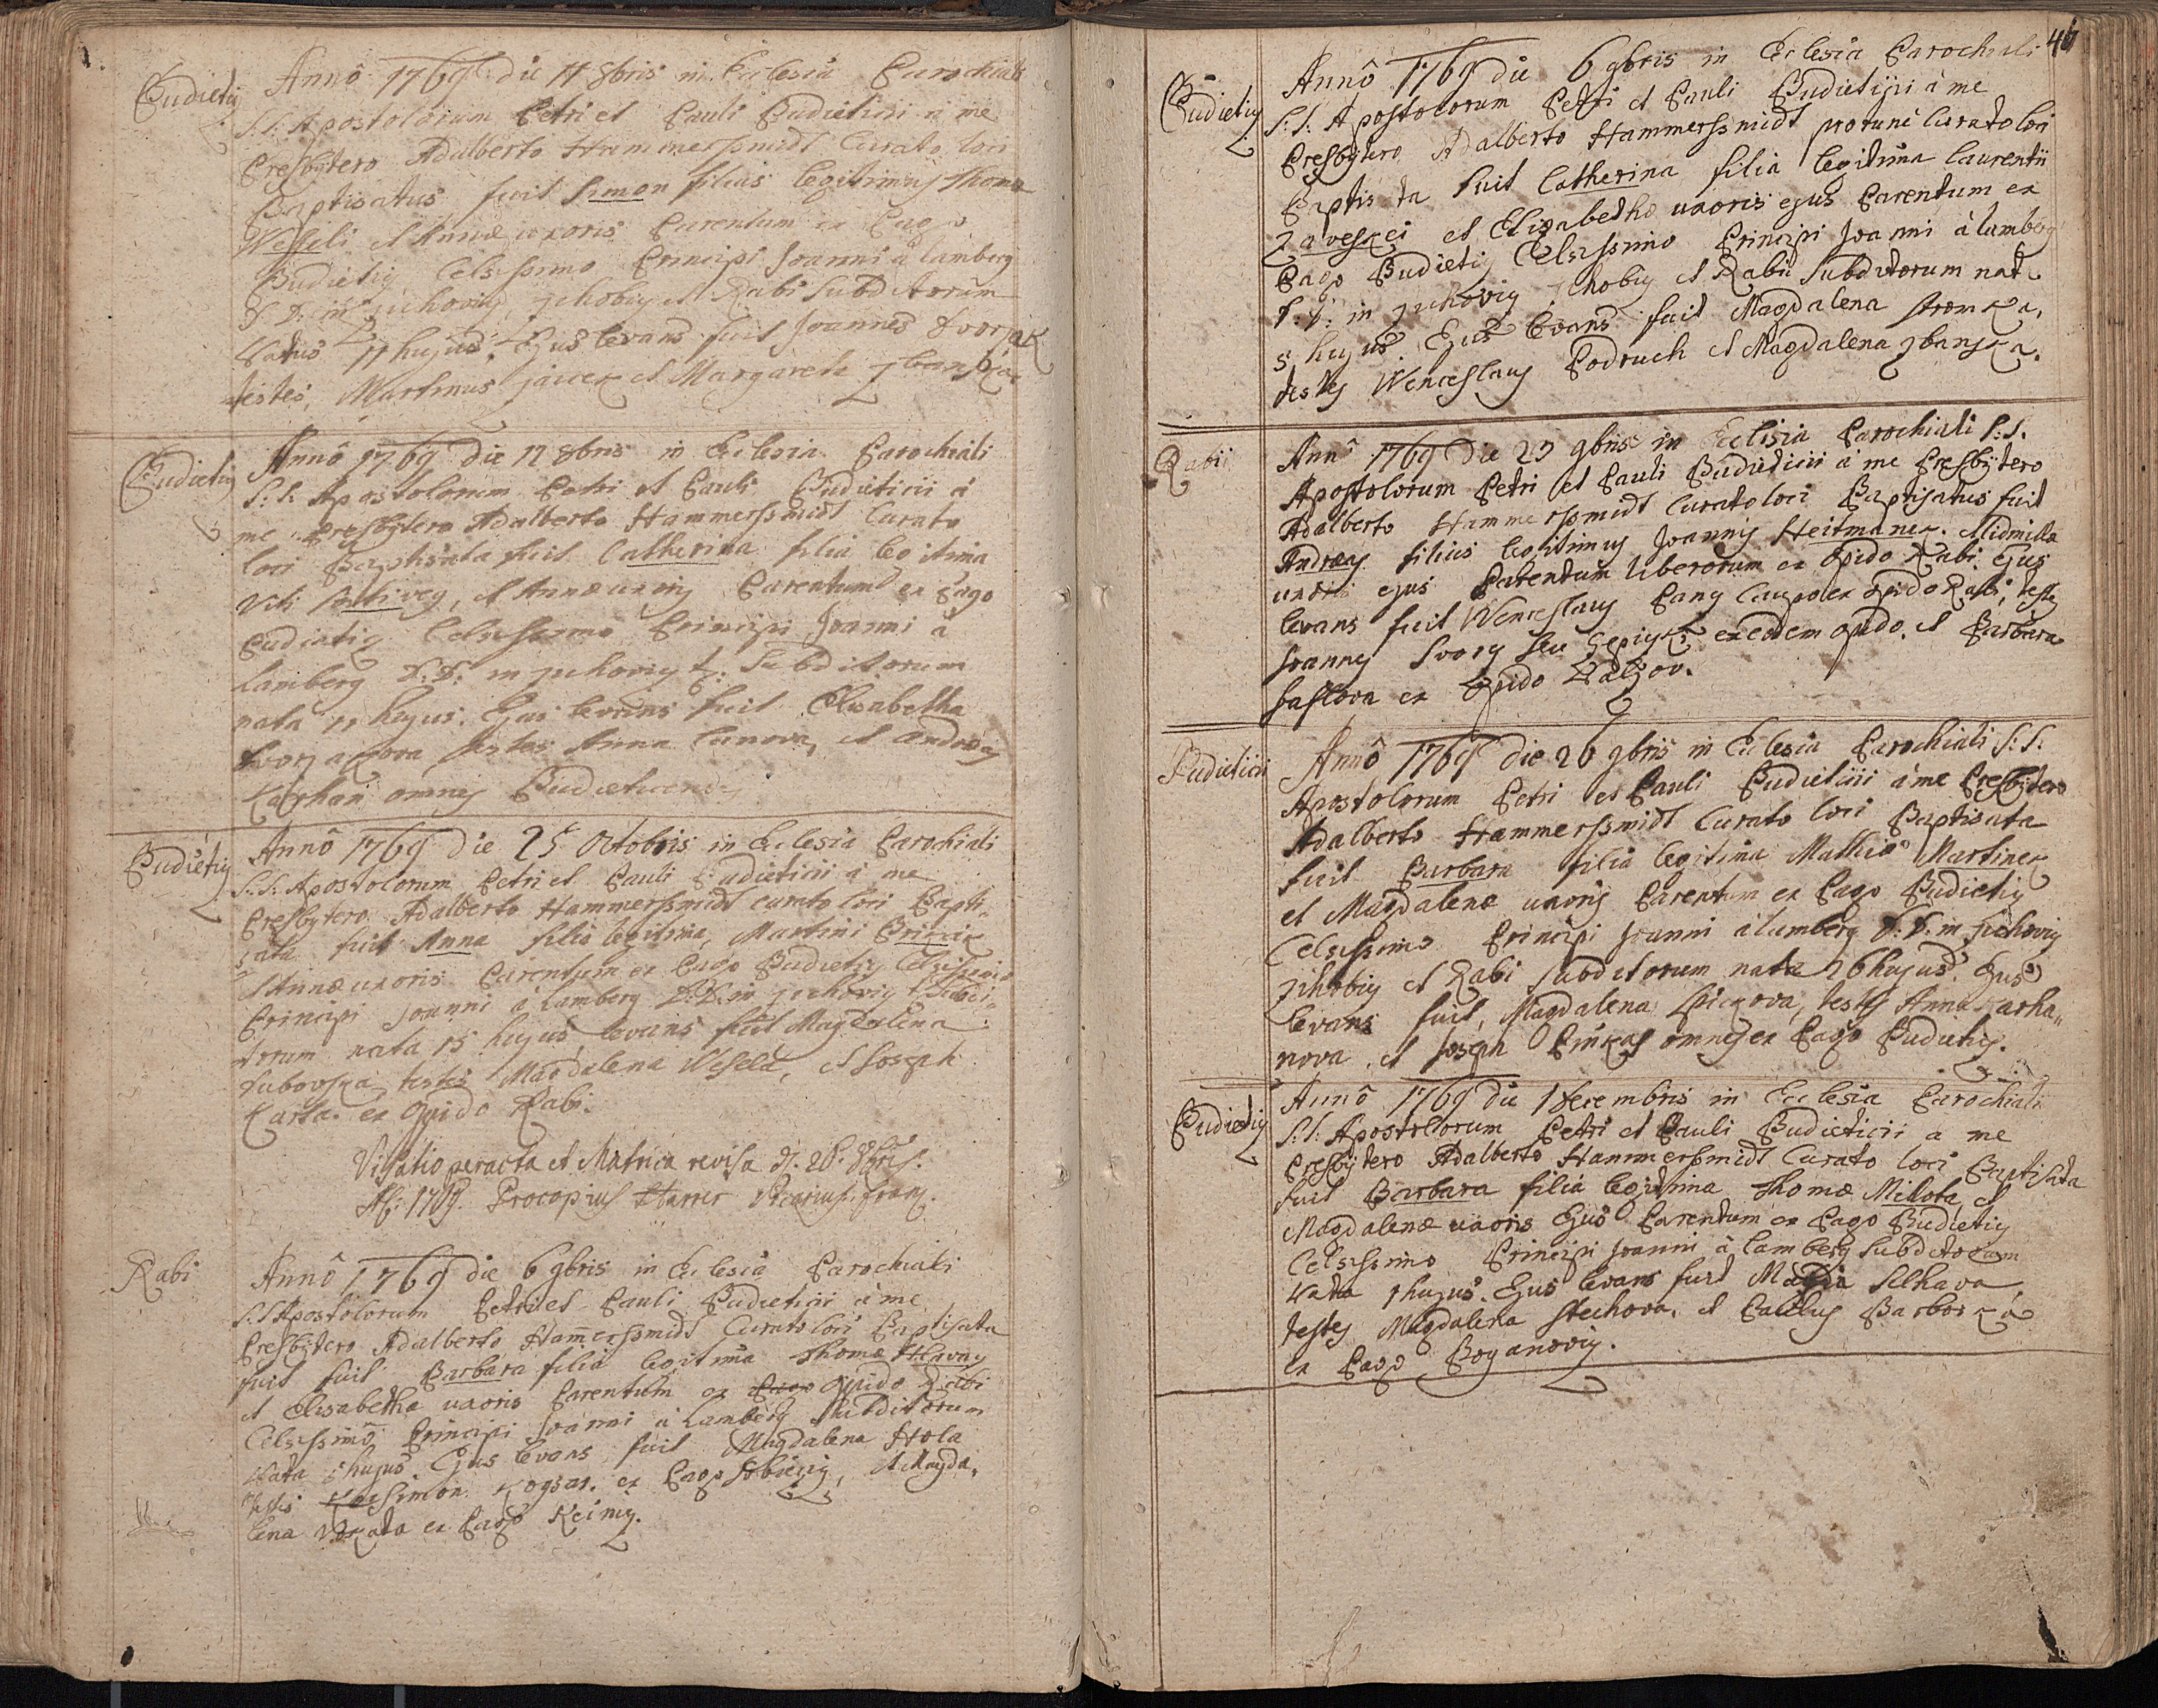 Budieticz
Anno 1769 die 11 8bris in Ecclesia Parochiali
S: S: Apostolorum Petri et Pauli Budieticii a me
Presbytero Adalberto Hammerssmidt Curato loci
Baptisatus fuit Simon filius legitimus Thomæ
Wesseli et Annæ uxoris Parentum ex Pago
Budieticz Celsissimo Principi Joanni a Lamberg
D. D: in Zichovicz, Zihobicz et Rabi Subditorum
Natus 11 hujus. Ejus levans fuit Joannes Dvorzak
testes, Martinus et Margareta
Budieticz
Anno 1769 die 12 8bris in Ecclesia Parochiali
S: S: Apostolorum Petri et Pauli Budieticii a
me Presbytero Adalberto Hammerssmidt Curato
loci Baptisata fuit Catherina filia legitima
Viti et Annæ uxoris Parentum ex Pago
Budieticz Celsissimo Principi Joanni a
Lamberg D: D: in Zichovicz Subditorum
nata 11 hujus. Ejus levans fuit Elisabetha
Dvorzakova testes Anna et Andreas
Karhan omnes
Budieticz
Anno 1769 die 25 Octobris in Ecclesia Parochiali
S: S: Apostolorum Petri et Pauli Budieticii a me
Presbytero Adalberto Hammerssmidt curato loci Bapti-
sata fuit Anna filia legitima, Martini
et Annæ uxoris Parentum ex Pago Budieticz Celsissimo
Principi Joanni a Lamberg D: D: in Zichovicz Subdi-
torum nata 25 hujus levans fuit Magdalena
testes Magdalena Wesela, et Joseph
ex Opido Rabi.
Visitatio peracta et Matrica revisa d. 28. 8bris.
1769. Procopius Harrer Vicarius foran.
Rabi
Anno 1769 die 6 9bris in Ecclesia Parochiali
S: S Apostolorum Petri et Pauli Budieticii a me
Presbytero Adalberto Ham̅erssmidt Curato loci Baptisata
fuit fuit Barbara filia legitima Thomæ
et Elisabetha uxoris Parentum ex Pago Opido Rabi
Celsissimo Principi Joanni a Lamberg Subditorum
Nata hujus Ejus levans fuit Magdalena Hola
testes Simon ex Pago et Magda-
lena ex Pago
46
Budieticz
Anno 1769 die 6 9bris in Ecclesia Parochiali
S: S: Apostolorum Petri et Pauli Budieticii a me
Presbytero Adalberto Hammerssmidt pro tunc Curato loci
Baptisata fuit Catherina filia legitima Laurentii
Zaveskei et Elisabethæ uxoris ejus Parentum ex
Pago Budieticz Celsissimo Principi Joanni a Lamberg
D: D: in Zichovicz Zihobicz et Rabii Subditorum nata
5 hujus. Ejus levans fuit Magdalena
testes Wenceslaus Podruch et Magdalena
Rabii
Anno 1769 die 23 9bris in Ecclisia Parochiali S: S.
Apostolorum Petri et Pauli Budieticii a me Presbytero
Adalberto Hammerssmidt Curato loci Baptisatus fuit
Andreas filius legitimus Joannis Heitmanek et Lidmilla
uxoris ejus Parentum liberorum ex Opido Rabi. Ejus
levans fuit Wenceslaus Caupo ex Opido Rabi, testes
Joannes ex eodem opido. et Barbara
ex Opido
Budieticii
Anno 1769 die 26 9bris in Ecclesia Parochiali S: S:
Apostolorum Petri et Pauli Budieticii a me Presbytero
Adalberto Hammerssmidt Curato loci Baptisata
fuit Barbara filia legitima Mathiæ Martinek
et Magdalenæ uxoris Parentum ex Pago Budieticz
Celsissimo Principi Joanni a Lamberg D: D: in Zichovicz
Zihobicz et Rabi Subditorum nata 26 hujus. Ejus
levans fuit, Magdalena testes Anna Karha-
nova, et Joseph Pinkas omnes ex Pago Budieticz.
Budieticz
Anno 1769 die 1 Decembris in Ecclesia Parochiali
S: S: Apostolorum Petri et Pauli Budieticii a me
Presbytero Adalberto Hammerssmidt Curato loci Baptisata
fuit Barbara filia legitima Thomæ Mikota et
Magdalenæ uxoris Ejus Parentum ex Pago Budieticz
Celsissimo Principi Joanni a Lamberg Subditorum
Nata 1 hujus. Ejus levans fuit
testes Magdalena et Paulus
ex Pago Boganovicz.